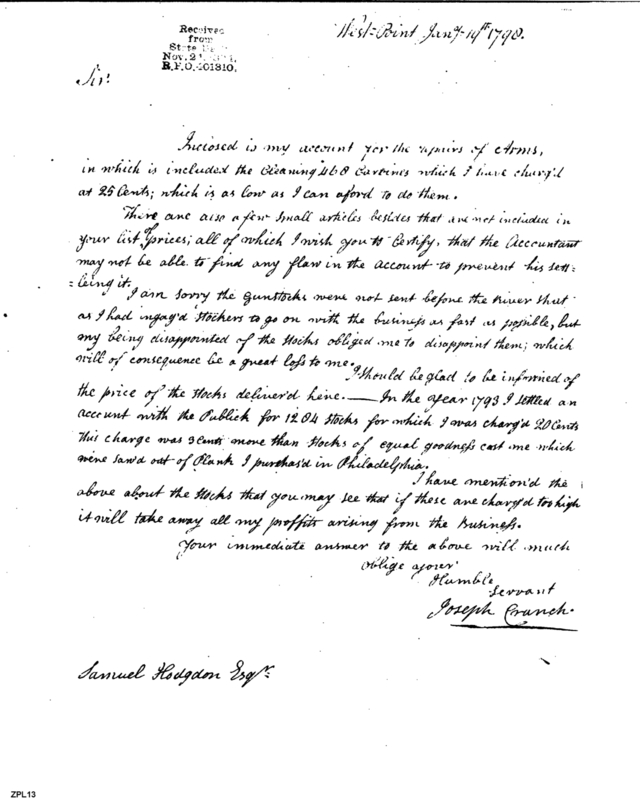 West-Point Jany. 19th 1798.
Received
from
State
Nov. 2
B.F.O. 401310.
Sir
Inclosed is my account for the repairs of Arms,
in which is included the Cleaning 468 Carbines which I have charg'd
at 25 Cents; which is as low as I can aford to do them.
There are also a few small articles besides that are not included in
your list of prices; all of which I wish you to Certify, that the Accountant
may not be able to find any flaw in the account to prevent his sett=
=leing it.
I am sorry the Gunstocks were not sent before the River shut
as I had ingag'd stockers to go on with the business as fast as possible, but
my being disappointed of the stocks obliged me to disappoint them; which
will of consequence be a great loss to me.
I should be glad to be informed of
the price of the stocks deliver'd here. — In the year 1793 I settled an
account with the Publick for 1204 stocks for which I was charg'd 20 Cents
this charge was 3 Cents more than stocks of equal goodness cost me which
were saw'd out of Plank I purchas'd in Philadelphia.
I have mention'd the
above about the stocks that you may see that if these are charg'd too high
it will take away all my proffits arising from the Business.
Your immediate answer to the above will much
oblige your
Humble
servant
Joseph Crunch.
Samuel Hodgdon Esqr.
ZPL13